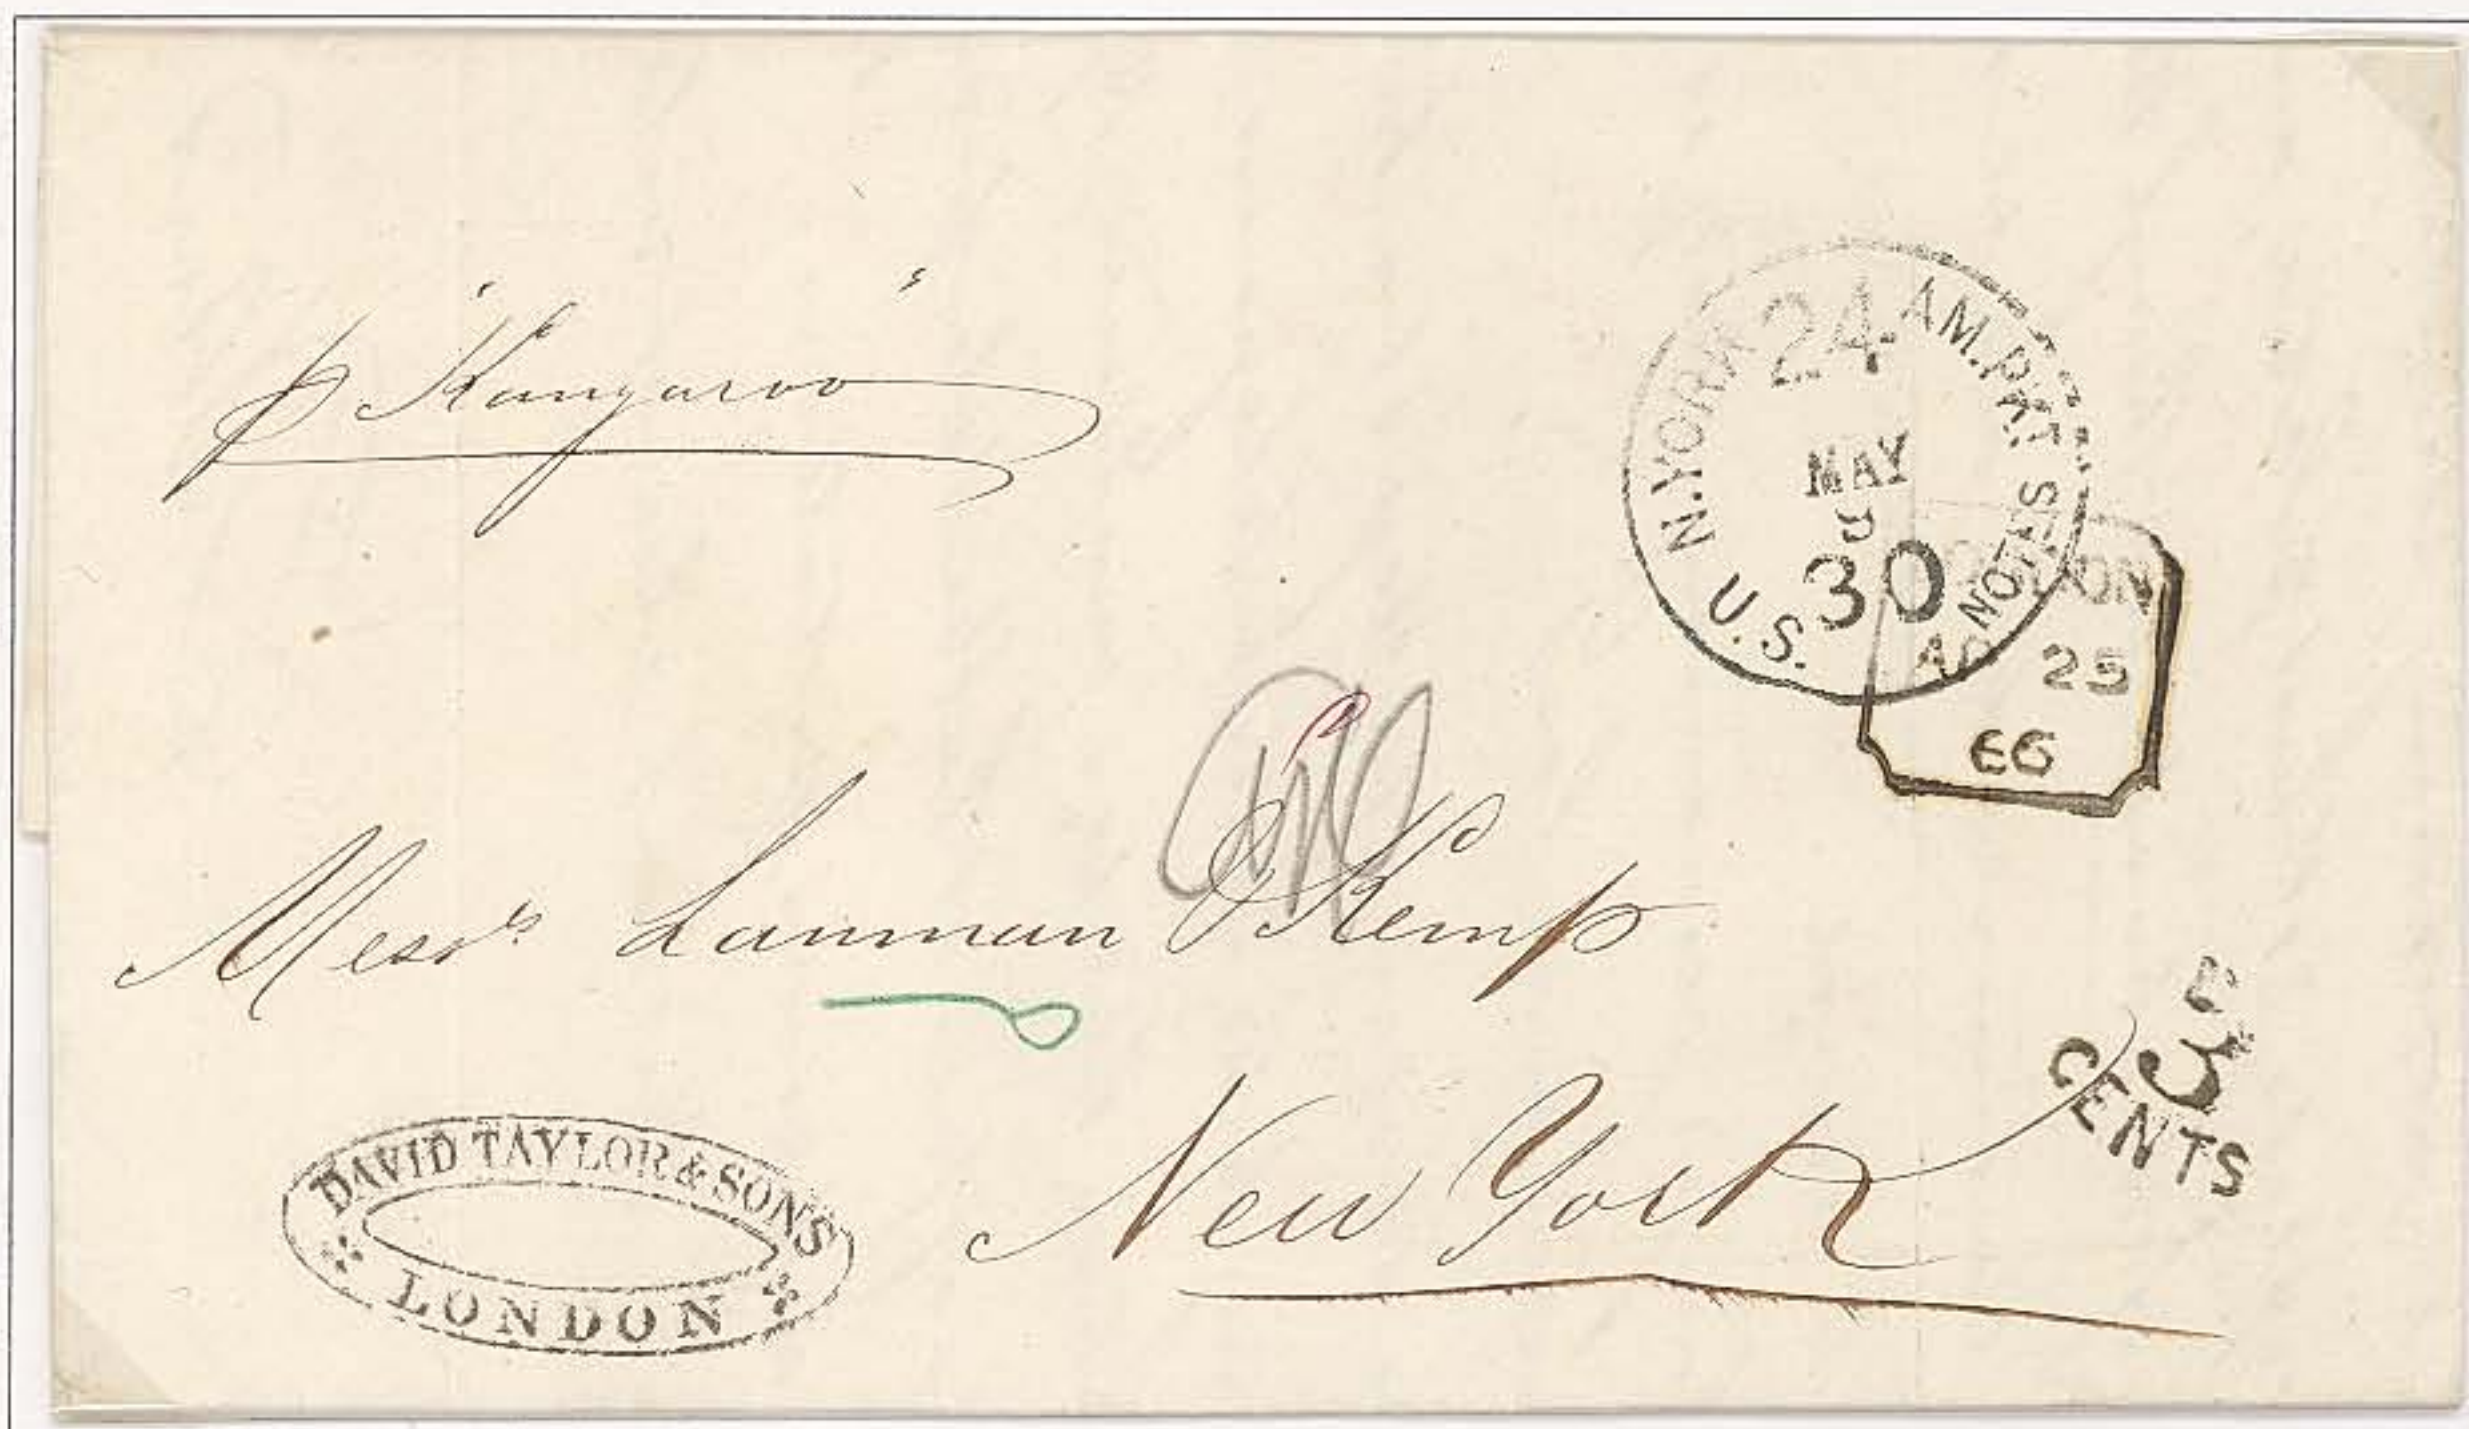 p "Kangaroo"
N. YORK 24 AM. PKT.
MAY
5
30
U.S. NOTES
25
66
Messrs Lanman & Kemp
New York
3
CENTS
DAVID TAYLOR & SONS
LONDON